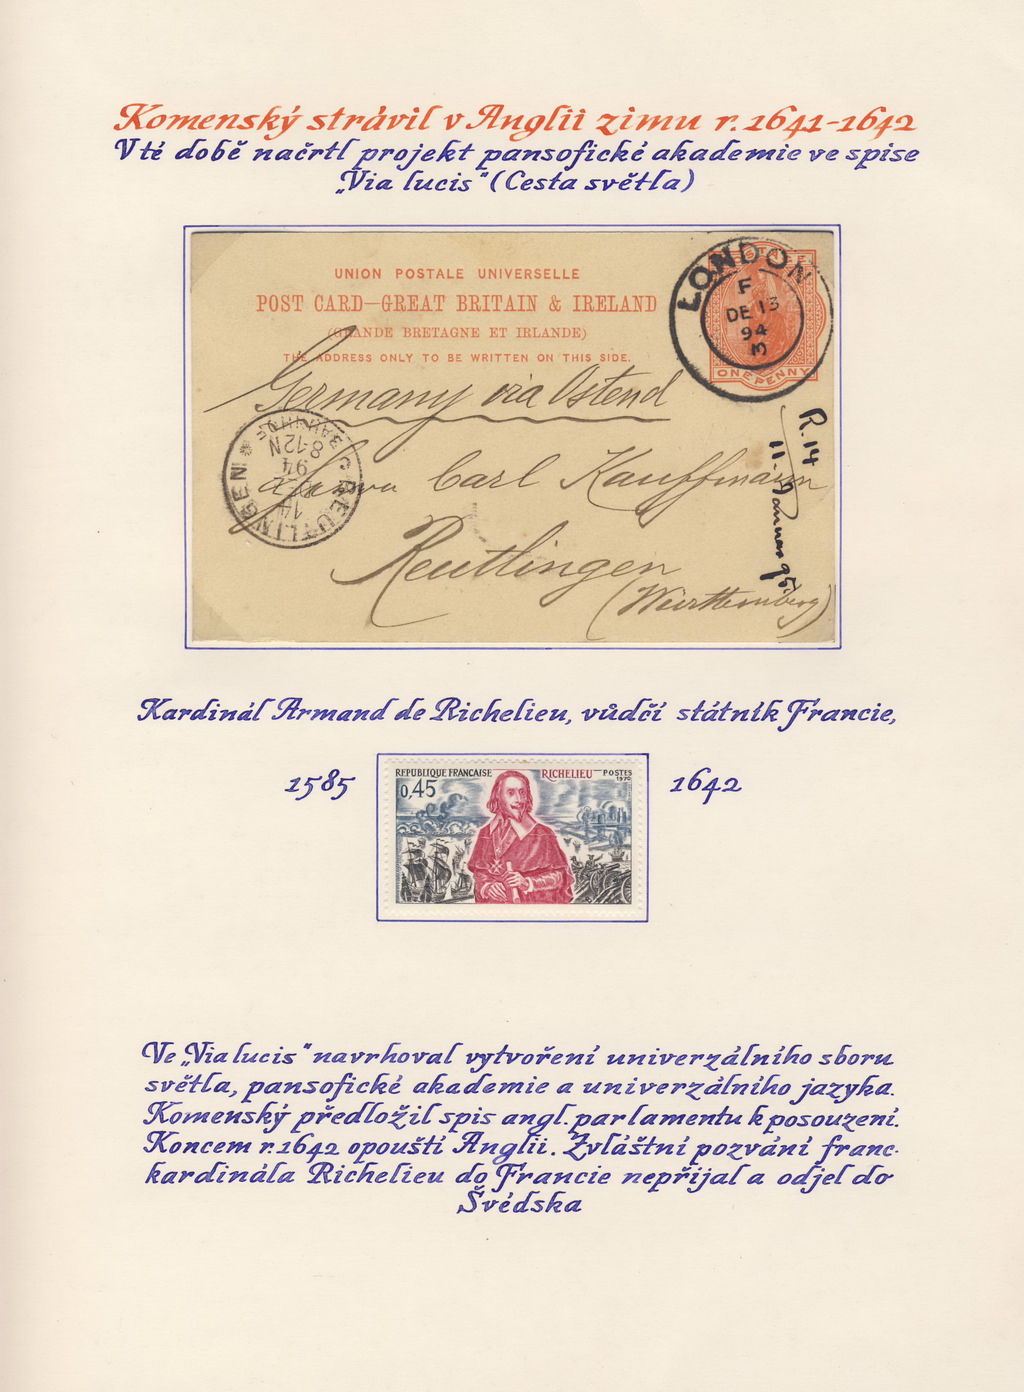 Komenský strávil v Anglii zimu r. 1641-1642
V té době načrtl projekt pansofické akademie ve spise
„Via lucis" (Cesta světla)
UNION POSTALE UNIVERSELLE
POST CARD—GREAT BRITAIN & IRELAND
(GRANDE BRETAGNE ET IRLANDE)
THE ADDRESS ONLY TO BE WRITTEN ON THIS SIDE.
LONDON
F
DE 13
94
3
ONE PENNY
Germany via Ostend
REUTLINGEN
BAHNHOF
14
94
8-12N
Herrn Carl Kauffmann
Reutlingen
(Württemberg)
R. 14
11. Januar 95.
Kardinál Armand de Richelieu, vůdčí státník Francie,
1585
REPUBLIQUE FRANCAISE
RICHELIEU—POSTES
1970
0,45
1642
Ve „Via lucis" navrhoval vytvoření univerzálního sboru
světla, pansofické akademie a univerzálního jazyka.
Komenský předložil spis angl. parlamentu k posouzení.
Koncem r. 1642 opouští Anglii. Zvláštní pozvání franc.
kardinála Richelieu do Francie nepřijal a odjel do
Švédska